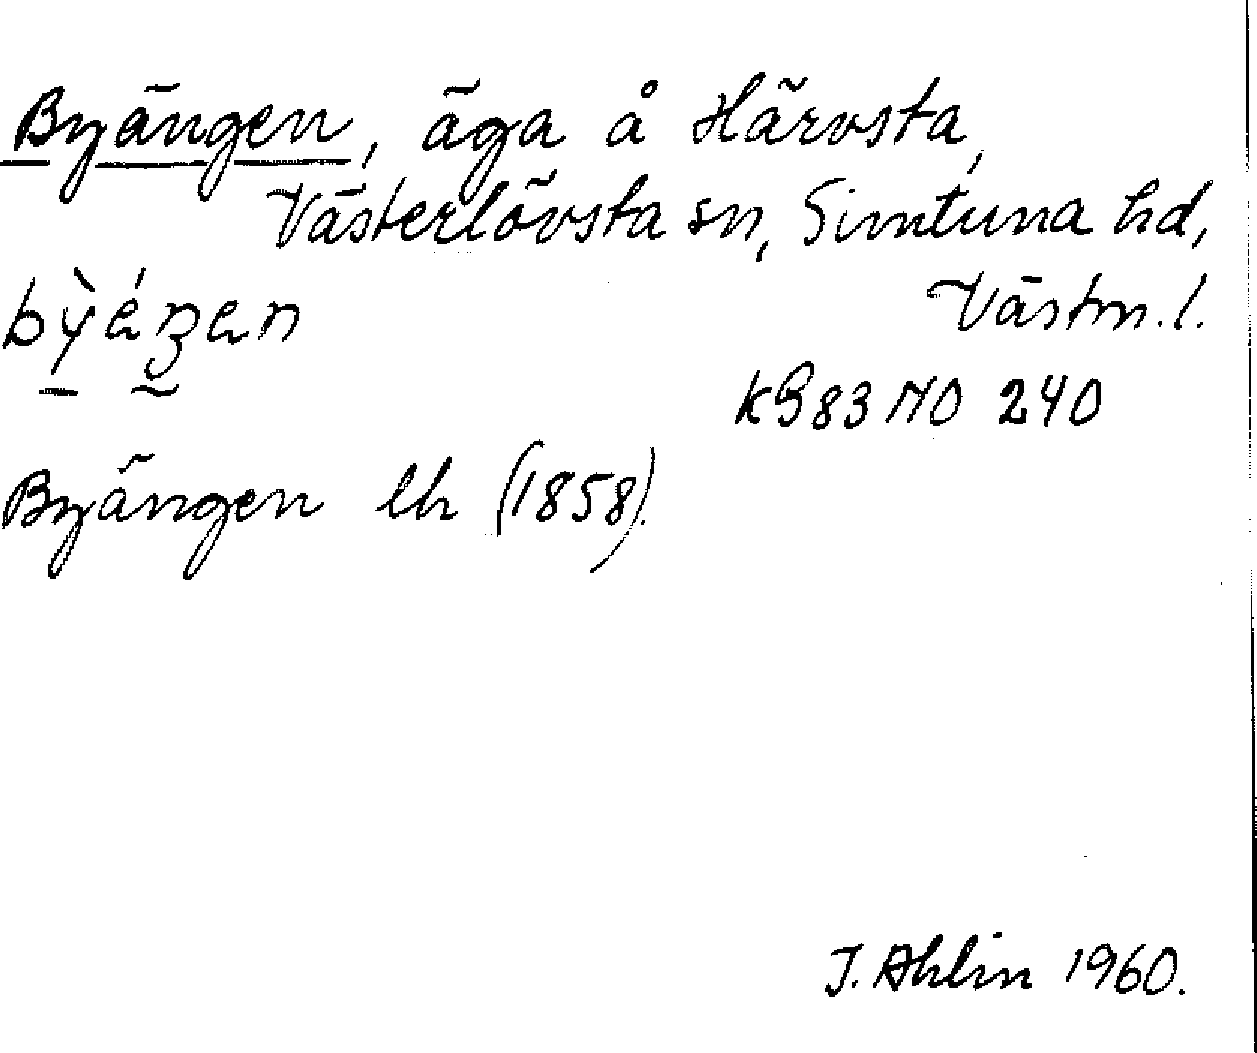 Byängen, äga å Härvsta,
Västerlövsta sn, Simtuna hd,
Västm.l.
bỳéŋen
kB83 NO 240
Byängen lh (1858).
J. Ahlin 1960.